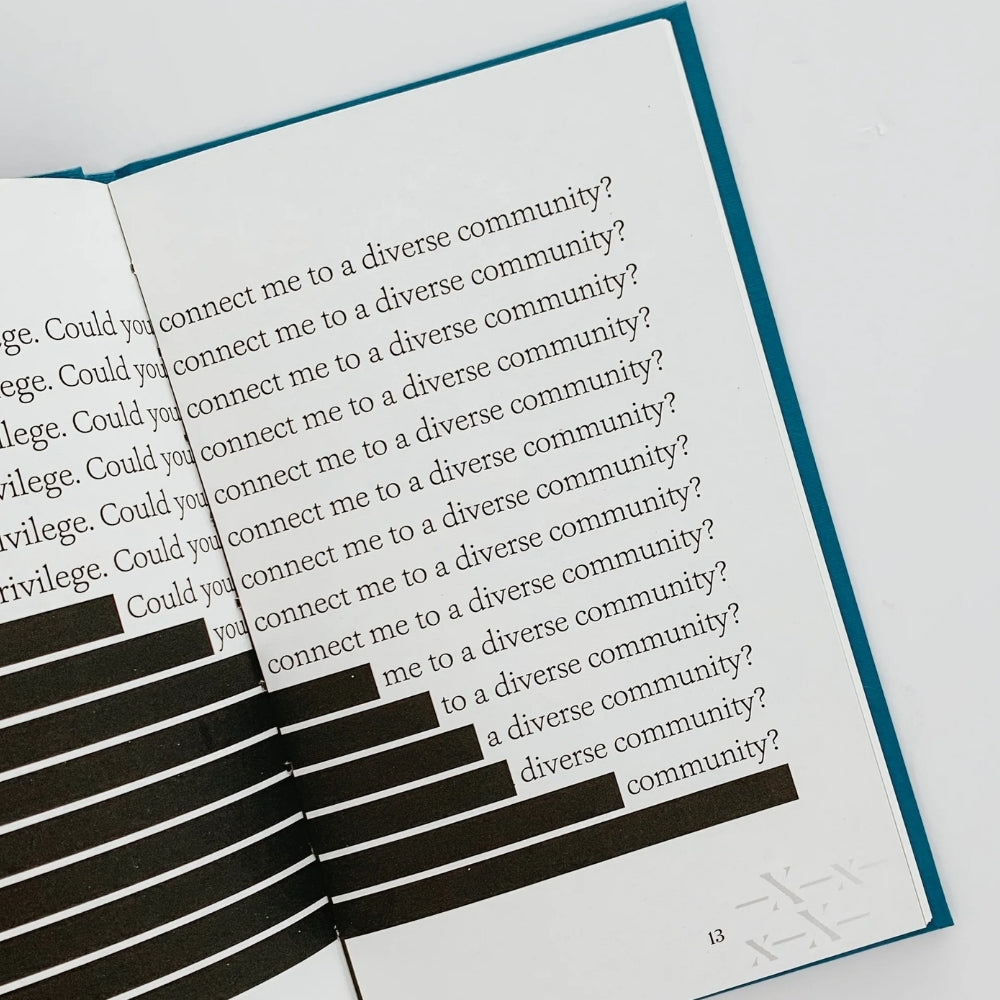 ge. Could you connect me to a diverse community?
ege. Could you connect me to a diverse community?
ilege. Could you connect me to a diverse community?
vilege. Could you connect me to a diverse community?
ivilege. Could you connect me to a diverse community?
rivilege. Could you connect me to a diverse community?
Could you connect me to a diverse community?
you connect me to a diverse community?
connect me to a diverse community?
me to a diverse community?
to a diverse community?
a diverse community?
diverse community?
community?
13